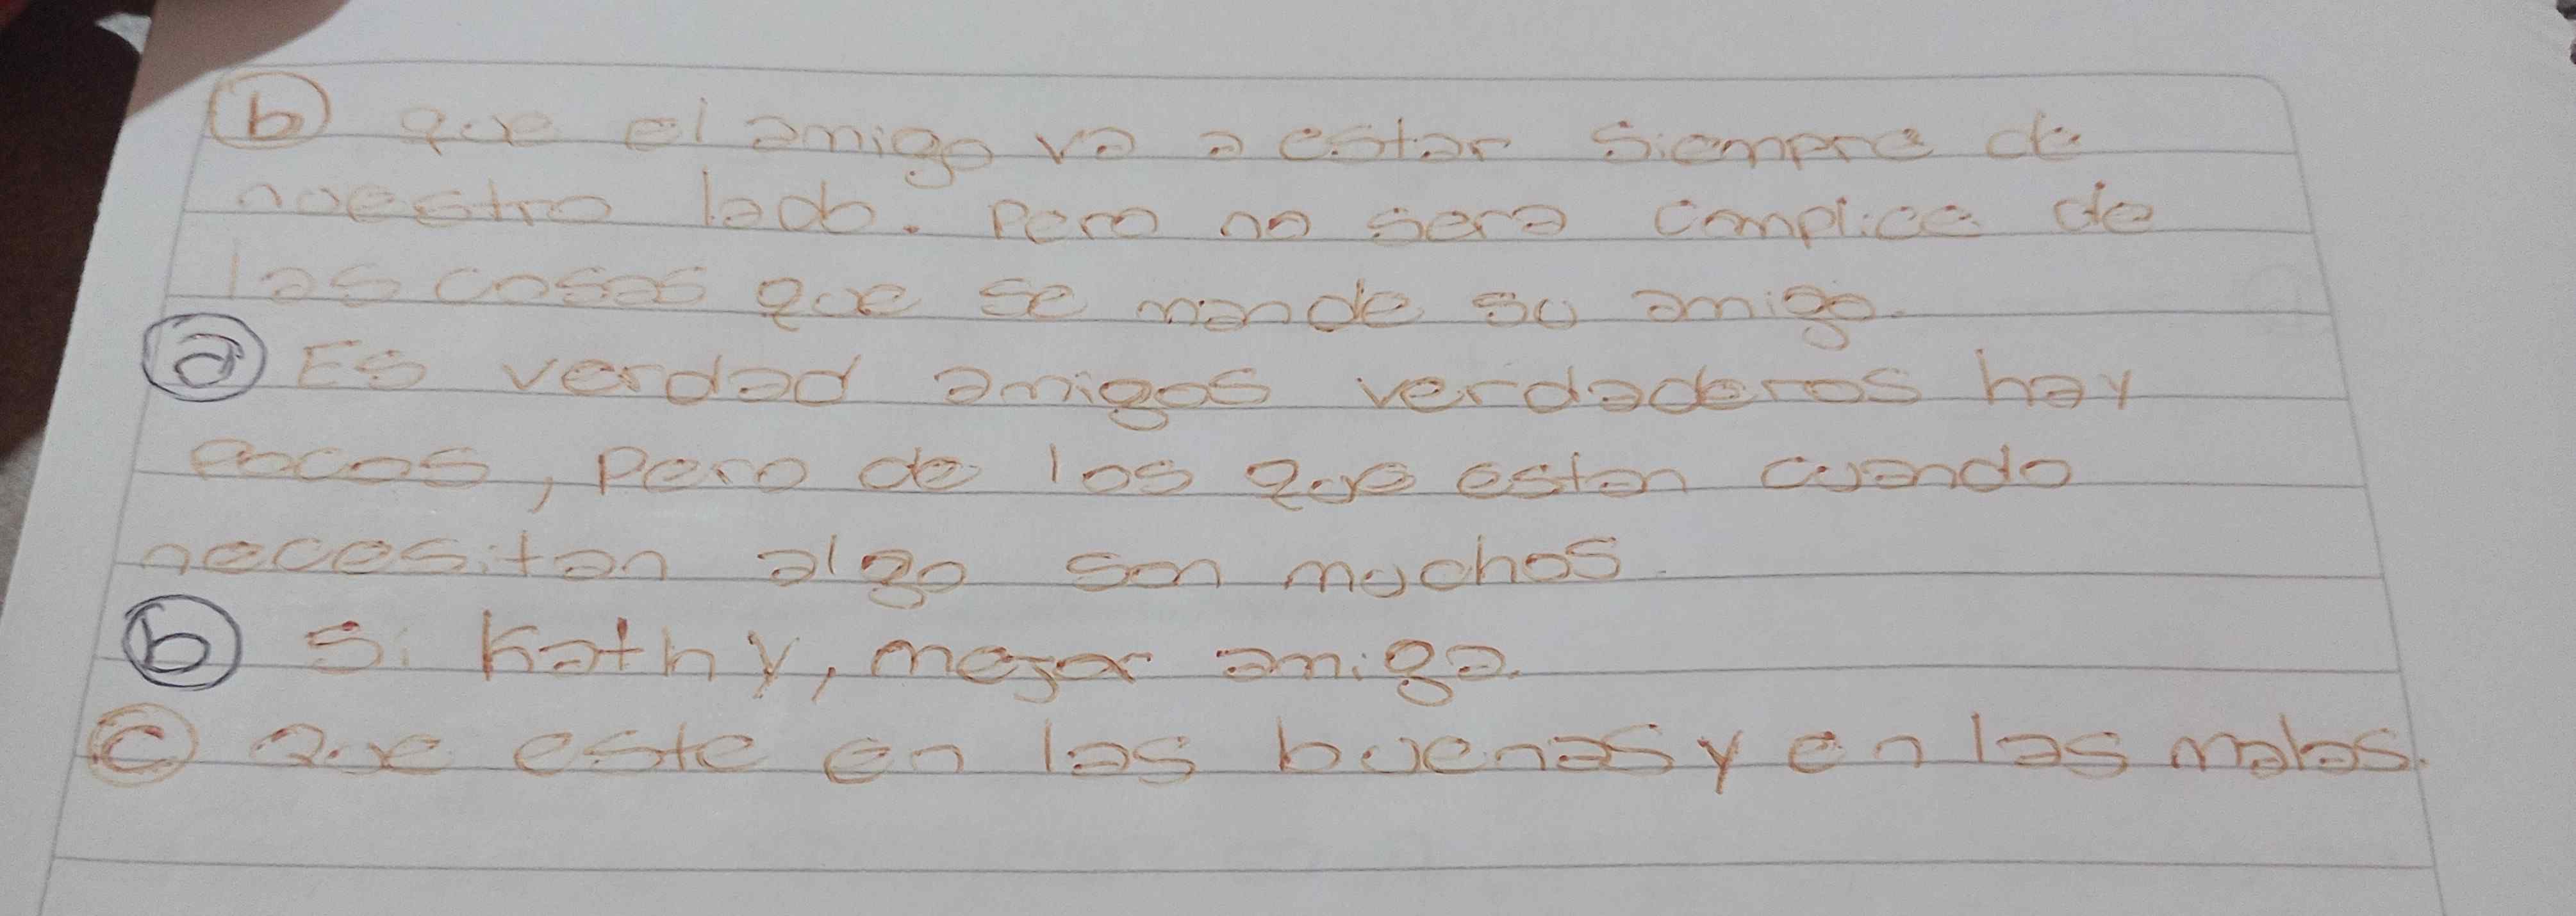 b que el amigo va a estar siempre de
nuestro lado. Pero no sera complice de
las cosas que se mande su amigo.
a Es verdad amigos verdaderos hay
pocos, pero de los que estan cuando
necesitan algo son muchos.
b Si Kathy, mejor amiga.
c Que este en las buenas y en las malas.